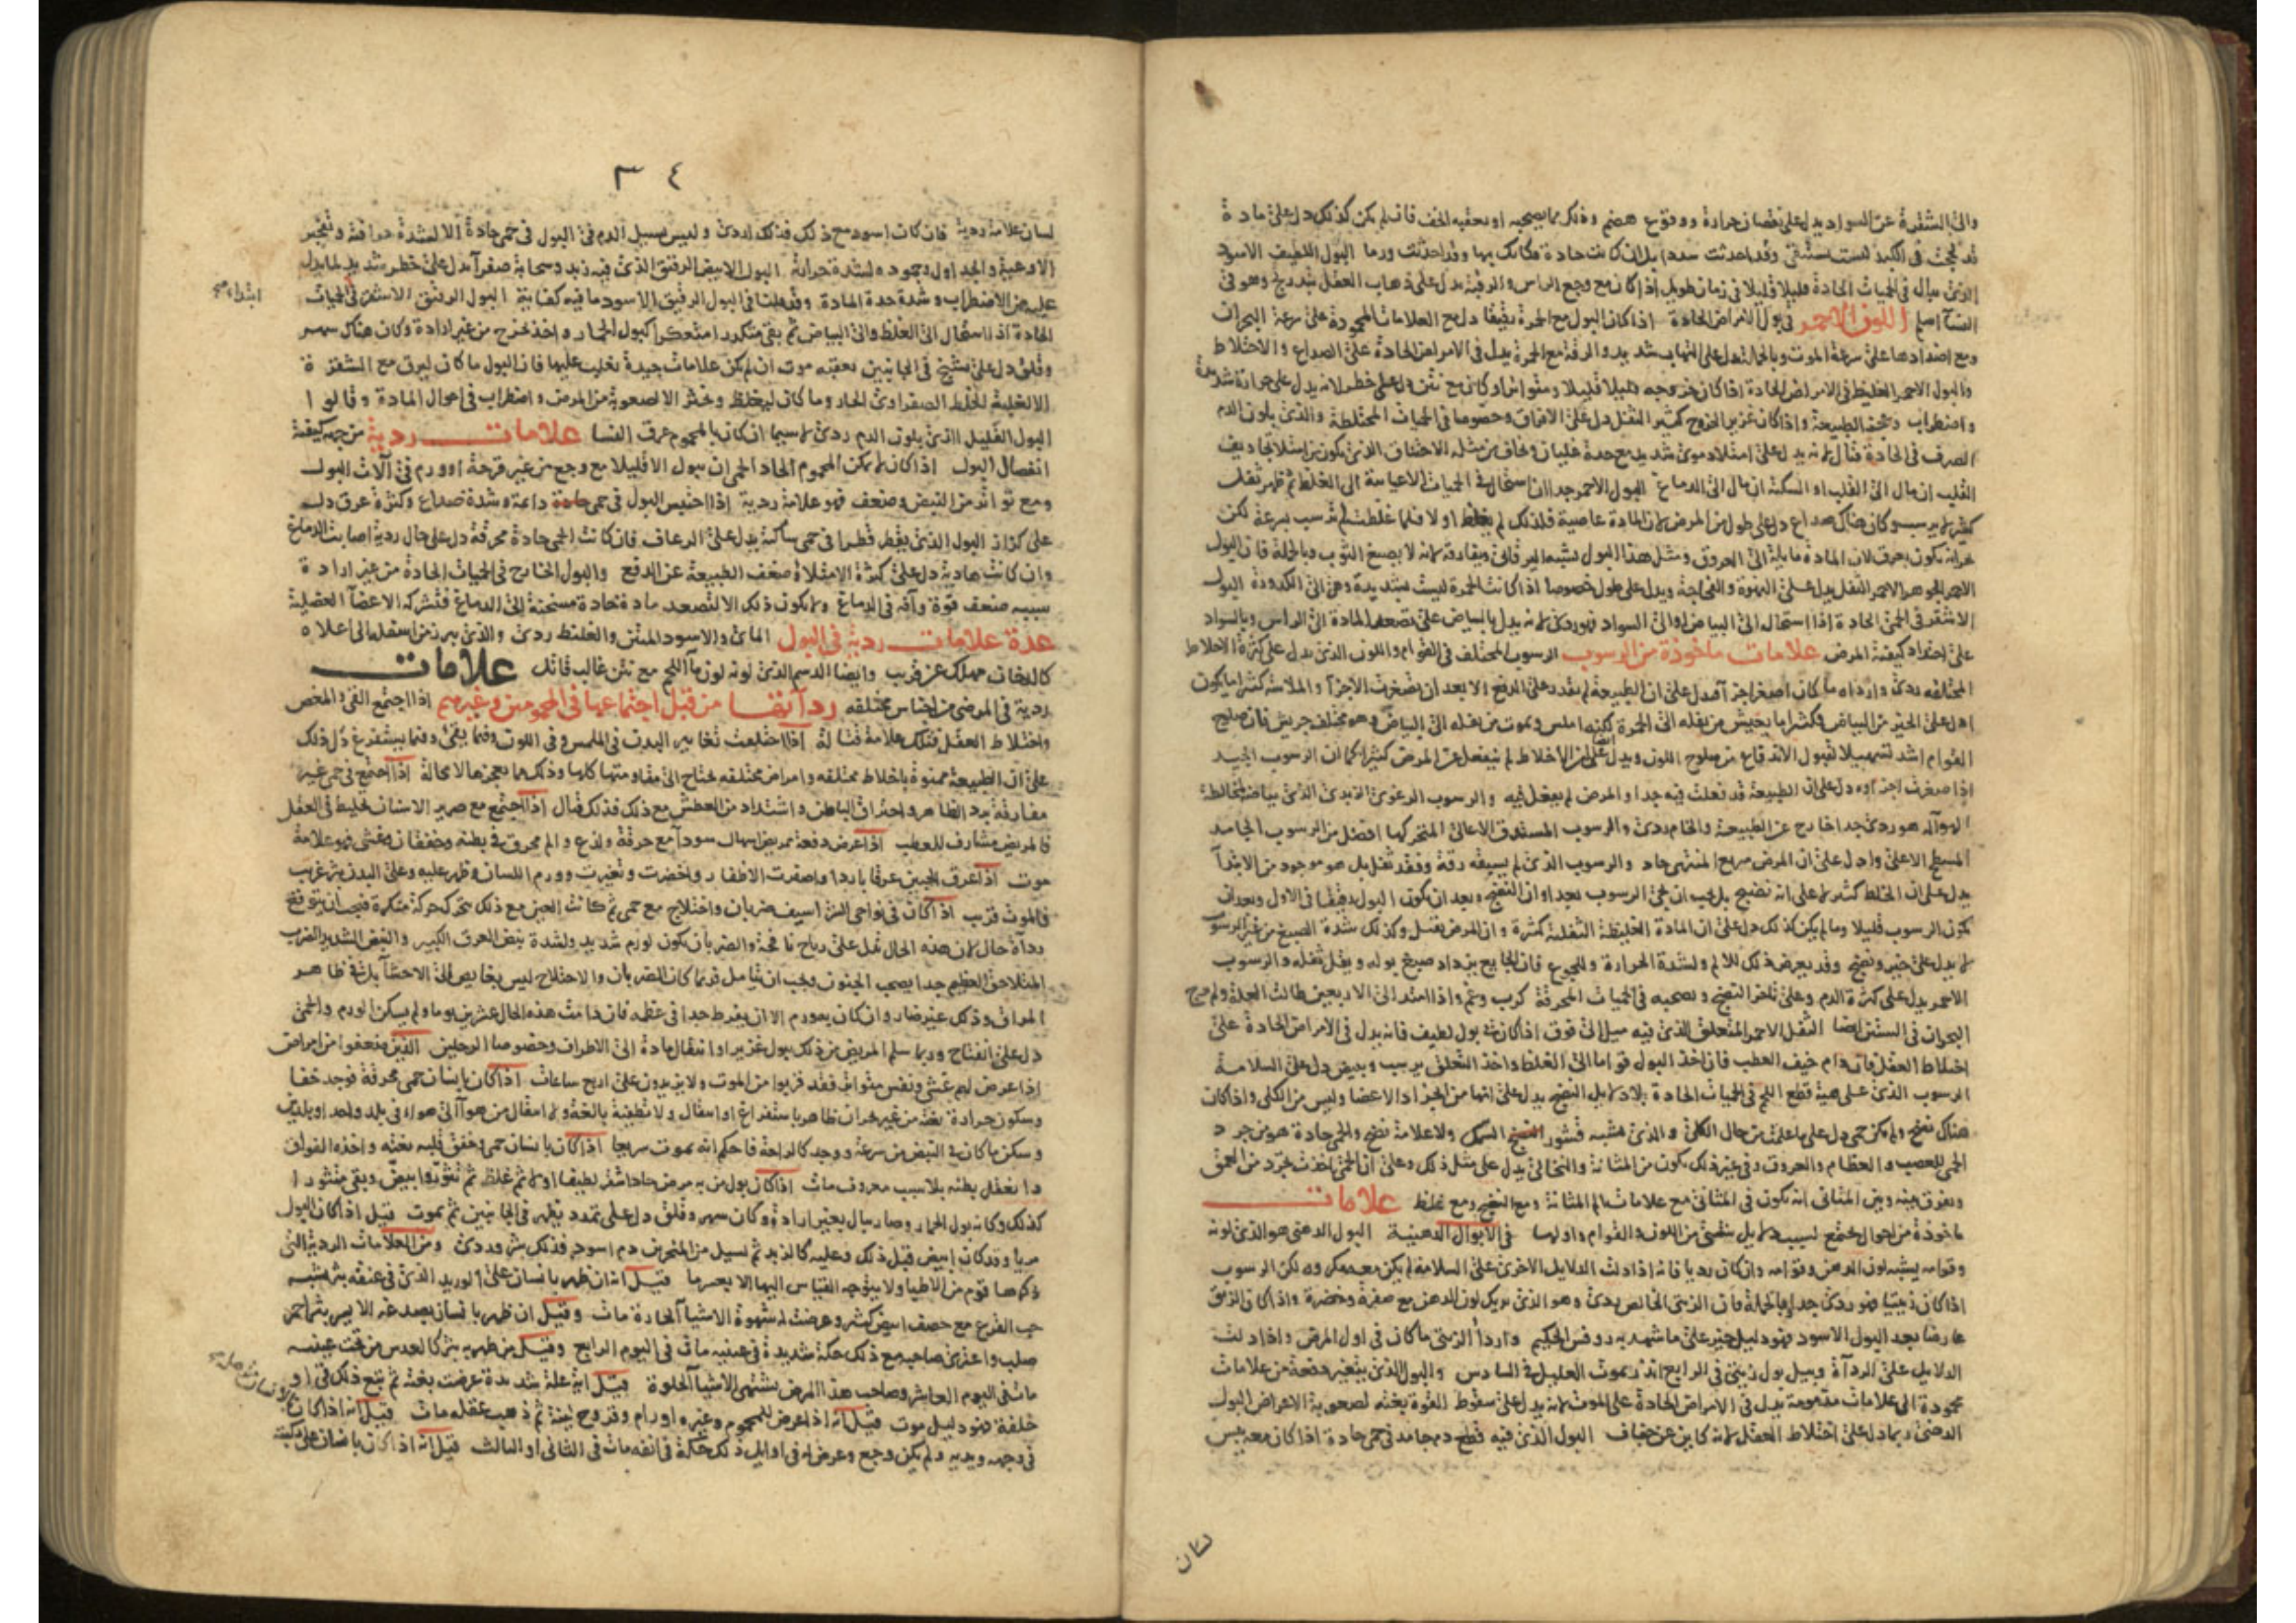 والى الشقرة عن السواد يدل على نقصان حرارة ووقوع هضم وذلك مما يصحبه او يعقبه الخف فان لم يكن كذلك دل على مادة
قد لحجت في الكبد ليست تستنقى وقد احدثت سددا بل ان كانت حادة فكانك بها وقد احدثت ورما البول اللطيف الاسود
الذي يبال في الحميات الحادة قليلا قليلا في زمان طويل اذا كان مع وجع الراس والرقبة يدل على ذهاب العقل بتدريج وهو في
النسآ اسلم اللون الاحمر في بول الامراض الحادة اذا كان البول مع الحمرة رقيقا دل مع العلامات المحمودة على سرعة البحران
ومع اضدادها على سرعة الموت وبالجملة يدل على التهاب شديد والرقة مع الحمرة يدل في الامراض الحادة على الصداع والاختلاط
والبول الاحمر الغليظ في الامراض الحادة اذا كان خروجه قليلا قليلا ومتواترا وكان مع نتن دل على خطر لانه يدل على حرارة شديدة
واضطراب وعجز الطبيعة واذا كان غزير الخروج كثير الثفل دل على الافراق وخصوصا في الحميات المختلطة والذي بلون الدم
الصرف في الحادة قتال لانه يدل على امتلاء دموي شديد مع حدة غليان ويخاف من مثله الاختناق الذي يكون من امتلا تجاويف
القلب ان مال الى القلب او السكتة ان مال الى الدماغ البول الاحمر جدا ان استحال في الحميات الاعيائية الى الغلظ ثم ظهر ثفل
كثير لا يرسب وكان هناك صداع دل على طول من المرض لان المادة عاصية فلذلك لم يغلظ اولا فلما غلظت لم ترسب بسرعة لكن
بحرانه يكون بعرق لان المادة مائلة الى العروق ومثل هذا البول يشبه اليرقاني ويفارقه بانه لا يصبغ الثوب وبالجملة فان البول
الاحمر الجوهر الاحمر الثفل يدل على النهوة والفجاجة ويدل على طول خصوصا اذا كانت الحمرة ليست بشديدة وهي الى الكدورة البول
الاشقر في الحمى الحادة اذا استحال الى البياض او الى السواد فهو ردي لانه يدل بالبياض على تصعد المادة الى الراس وبالسواد
على احتداد كيفية المرض علامات ماخوذة من الرسوب الرسوب المختلف في القوام واللون الذي يدل على كثرة الاخلاط
المختلفة ردي وارداه ما كان اصغر اجزآ فدل على ان الطبيعة لم تقدر على الدفع الا بعد ان تصغرت الاجزآ والملاسة كثيرا ما يكون
ادل على الخير من البياض فكثيرا ما يعيش من ثفله الى الحمرة لكنه املس ويموت من ثفله الى البياض وهو مختلف جريش فان صلوح
القوام اشد تسهيلا لقبول الاندفاع من صلوح اللون ويدل على ان الاخلاط لم ينفعل عن المرض كثيرا كما ان الرسوب الجيد
اذا صغرت اجزاوه دل على ان الطبيعة قد فعلت فيه جدا والمرض لم يفعل فيه والرسوب الرغوي الزبدي الذي بياضه لمخالطة
الهوآ له هو ردي جدا خارج عن الطبيعة والخام ردي والرسوب المستدق الاعالي المتحرك هما افضل من الرسوب الجامد
المسطح الاعلى وادل على ان المرض سريع المنتهى حاد والرسوب الذي لم يسبقه رقة وفقد ثفل بل هو موجود من الابتدآ
يدل على ان الخلط كثير لا على انه نضيج بل يجب ان يجي الرسوب بعد اوان النضج وبعد ان يكون البول رقيقا في الاول وبعد ان
يكون الرسوب قليلا وما لم يكن كذلك دل على ان المادة الغليظة الثفلية كثيرة وان المرض يقتل وكذلك شدة الصبغ من غير الرسوب
لا يدل على خير ونضج وقد يعرض ذلك للالم ولشدة الحرارة وللجوع فان الجايع يزداد صبغ بوله ويقل ثفله والرسوب
الاحمر يدل على كثرة الدم وعلى تاخر النضج وتصحبه في الحميات المحرقة كرب وغم واذا امتد الى الاربعين طالت العلة ولم يرج
البحران في الستين ايضا الثفل الاحمر المتعلق الذي فيه ميل الى فوق اذا كان في بول لطيف فانه يدل في الامراض الحادة على
اختلاط العقل فان دام خيف العطب فان اخذ البول قواما الى الغلظ واخذ التعلق يرسب ويبيض دل على السلامة
الرسوب الذي على هيئة قطع اللحم في الحميات الحادة بلا دلايل النضج يدل على انها من انجراد الاعضا وليس من الكلى واذا كان
هناك نضج ولم يكن حمى دل على ما علمت من حال الكلى والذي يشبه قشور السمك ولا علامة نضج والحمى حادة هو من جرد
الحمى للعصب والعظام والعروق وفي غير ذلك يكون من المثانة والنخالي يدل على مثل ذلك وعلى ان الحمى اخذت تجرد من العمق
ويفرق بينه وبين المثاني انه يكون في المثاني مع علامات الم المثانة ومع النضج ومع غلظ علامات
ماخوذة من احوال يجتمع لسبب دلايل شتى من اللون والقوام واولها في الابوال الدهنية البول الدهني هو الذي لونه
وقوامه يشبه لون الدهن وقوامه وان كان رديا فانه اذا دلت الدلايل الاخرى على السلامة لم يكن معه مكروه لكن الرسوب
اذا كان زيتيا فهو ردي جدا وبالجملة فان الزيتي الخالص ردي وهو الذي يريك لون الدهن مع صفرة وخضرة واذا كان الزيتي
عارضا بعد البول الاسود فهو دليل خير على ما شهد به روفس الحكيم واردأ الزيتي ما كان في اول المرض واذا دلت
الدلايل على الردآة وبيل بول زيتي في الرابع انذر بموت العليل في السادس والبول الذي يتغير دفعة من علامات
محمودة الى علامات مذمومة يدل في الامراض الحادة على الموت لانه يدل على سقوط القوة بغتة لصعوبة الاعراض البول
الدهني ربما دل على اختلاط العقل لانه كاين عن جفاف البول الذي فيه قطع دم جامد في حمى حادة اذا كان معه يبس
لسان
٣٤
لسان علامة ردية فان كان اسود مع ذلك فذلك اردى وليس يسيل الدم في البول في حمى حادة الا لشدة حرافته وتفجير
الاوعية والجداول وجموده لشدة حرارته البول الابيض الرقيق الذي فيه زبد وسحابة صفرآ يدل على خطر شديد لما يدل
عليه من الاضطراب وشدة حدة المادة وقد قلنا في البول الرقيق الاسود ما فيه كفاية البول الرقيق الاشقر في الحميات
ابتداء صح
الحادة اذا استحال الى الغلظ والى البياض ثم بقي متكدرا متعكرا كبول الحمار واخذ يخرج من غير ارادة وكان هناك سهر
وقلق دل على تشنج في الجانبين يعقبه موت ان لم يكن علامات جيدة تغلب عليها فان البول ما كان ليرق مع الشقرة
الا لغلبة الخلط الصفراوي الحار وما كان ليغلظ ويخثر الا لصعوبة من المرض واضطراب في احوال المادة وقالوا
البول القليل الذي بلون الدم ردي لا سيما ان كان بالمحموم عرق النسا علامات ردية من جهة كيفية
انفصال البول اذا كان لا يمكن المحموم الحاد الحمى ان يبول الا قليلا مع وجع من غير قرحة او ورم في آلات البول
ومع تواتر من النبض وضعف فهو علامة ردية اذا احتبس البول في حمى حادة دايمة وشدة صداع وكثرة عرق دل
على كزاز البول الذي يقطر قطرا في حمى ساكنة يدل على الرعاف فان كانت الحمى حادة محرقة دل على حال ردية اصابت الدماغ
وان كانت هادية دل على كثرة الامتلاء وضعف الطبيعة عن الدفع والبول الخارج في الحميات الحادة من غير ارادة
سببه ضعف قوة وآفة في الدماغ ولا يكون ذلك الا لتصعد مادة حادة مسخنة الى الدماغ فتشركه الاعضآ العضلية
عدة علامات ردية في البول المائي والاسود المنتن والغليظ ردي والذي يبرز من اسفله الى اعلاه
كالدخان مهلك عن قريب وايضا الدسم الذي لونه لون مآ اللحم مع نتن غالب قاتل علامات
ردية في المرضى من اجناس مختلفة ردآتها من قبل اجتماعها في المحمومين وغيرهم اذا اجتمع القي والمغص
واختلاط العقل فتلك علامة قتالة اذا اختلفت تغايير البدن في الملمس وفي اللون وفيما يقي وفيما يستفرغ دل ذلك
على ان الطبيعة ممنوة باخلاط مختلفة وامراض مختلفة يحتاج الى مقاومتها كلها وذلك مما يعجزها لا محالة اذا اجتمع في حمى غير
مفارقة برد الظاهر واحتراق الباطن واشتداد من العطش مع ذلك فذلك قتال اذا اجتمع مع صرير الاسنان تخليط في العقل
فالمريض مشارف للعطب اذا عرض دفعة لمريض اسهال سودآ مع حرقة ولذع والم محرق في بطنه وخفقان وغشي فهو علامة
موت اذا عرق الجبين عرقا باردا واصفرت الاظفار واخضرت وتغيرت وورم اللسان وظهر عليه وعلى البدن بثر غريب
فالموت قريب اذا كان في نواحي الشراسيف ضربان واختلاج مع حمى ثم كانت العين مع ذلك تتحرك حركة منكرة فيجب ان يتوقع
ردآة حال لان هذه الحال تدل على رياح نافخة والضربان يكون لورم شديد ولشدة نبض العرق الكبير والنبض الشديد الضرب
المتلاحق العظيم جدا يصحب الجنون ويجب ان يتامل فربما كان الضربان والاختلاج ليس بغايص الى الاحشآ بل في ظاهر
المراق وذلك غير ضار وان كان بورم الا ان يفرط جدا في عظمه فان دامت هذه الحال عشرين يوما ولم يسكن الورم والحمى
دل على انفتاح وربما سلم المريض من ذلك ببول غزير او انتقال مادة الى الاطراف وخصوصا الرجلين الذين ضعفوا من امراض
اذا عرض لهم غشي ونفس متواتر فقد قربوا من الموت ولا يزيدون على اربع ساعات اذا كان بانسان حمى محرقة فوجد خفا
وسكون حرارة بغتة من غير بحران ظاهر باستفراغ او اسهال ولا تطفية بالغة ولا انتقال من هوآ الى هواء في بلد واحد او بلدين
وسكن ما كان في النبض من سرعة ووجد كالراحة فاحكم انه يموت سريعا اذا كان بانسان حمى وخفق قلبه بغتة واخذه الفواق
واعتقل بطنه بلا سبب معروف مات اذا كان بول من به مرض حاد اشقر لطيفا اولا ثم غلظ ثم تثور وابيض وبقي متثورا
كذلك وكانه بول الحمار وصار يبال بغير ارادة وكان سهر وقلق دل على تمدد يظهر في الجانبين ثم يموت قيل اذا كان البول
مريا وقد كان ابيض قبل ذلك وعليه كالزبد ثم يسيل من المنخرين دم اسود فذلك شر وردي ومن العلامات الردية التي
ذكرها قوم من الاطبا ولا يتوجه القياس اليها الا بعسر ما قيل انه ان ظهر بانسان على الوريد الذي في عنقه بثر يشبه
حب القرع مع حصف ابيض كثير وعرضت له شهوة الاشيآ الحارة مات وقيل ان ظهر بانسان بصدغه الايسر بثر احمر
صلب واعترى صاحبه مع ذلك حكة شديدة في عينيه مات في اليوم الرابع وقيل من ظهر به بثر كالعدس من تحت عينيه
مات في اليوم العاشر وصاحب هذا المرض يشتهي الاشيآ الحلوة قيل اية علة شديدة عرضت بغتة ثم تبع ذلك قي او
خلفة فهو دليل موت قيل انه اذا عرض للمحموم وغيره اورام وقروح لينة ثم ذهب عقله مات قيل انه اذا كان
في وجهه ويديه ولم يكن وجع وعرض له في اوايل ذلك حكة في انفه مات في الثاني او الثالث قيل انه اذا كان بانسان على ركبته